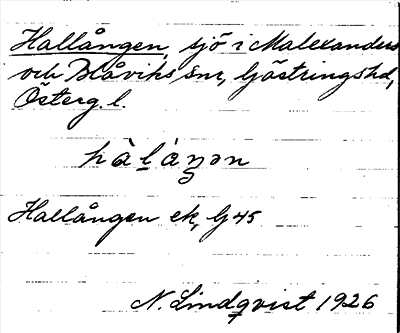 Hallången, sjö i Malexanders
och Blåviks snr, Göstringshd,
Österg. l.
hàl̠áŋən
Hallången ek, G 45
N. Lindqvist 1926